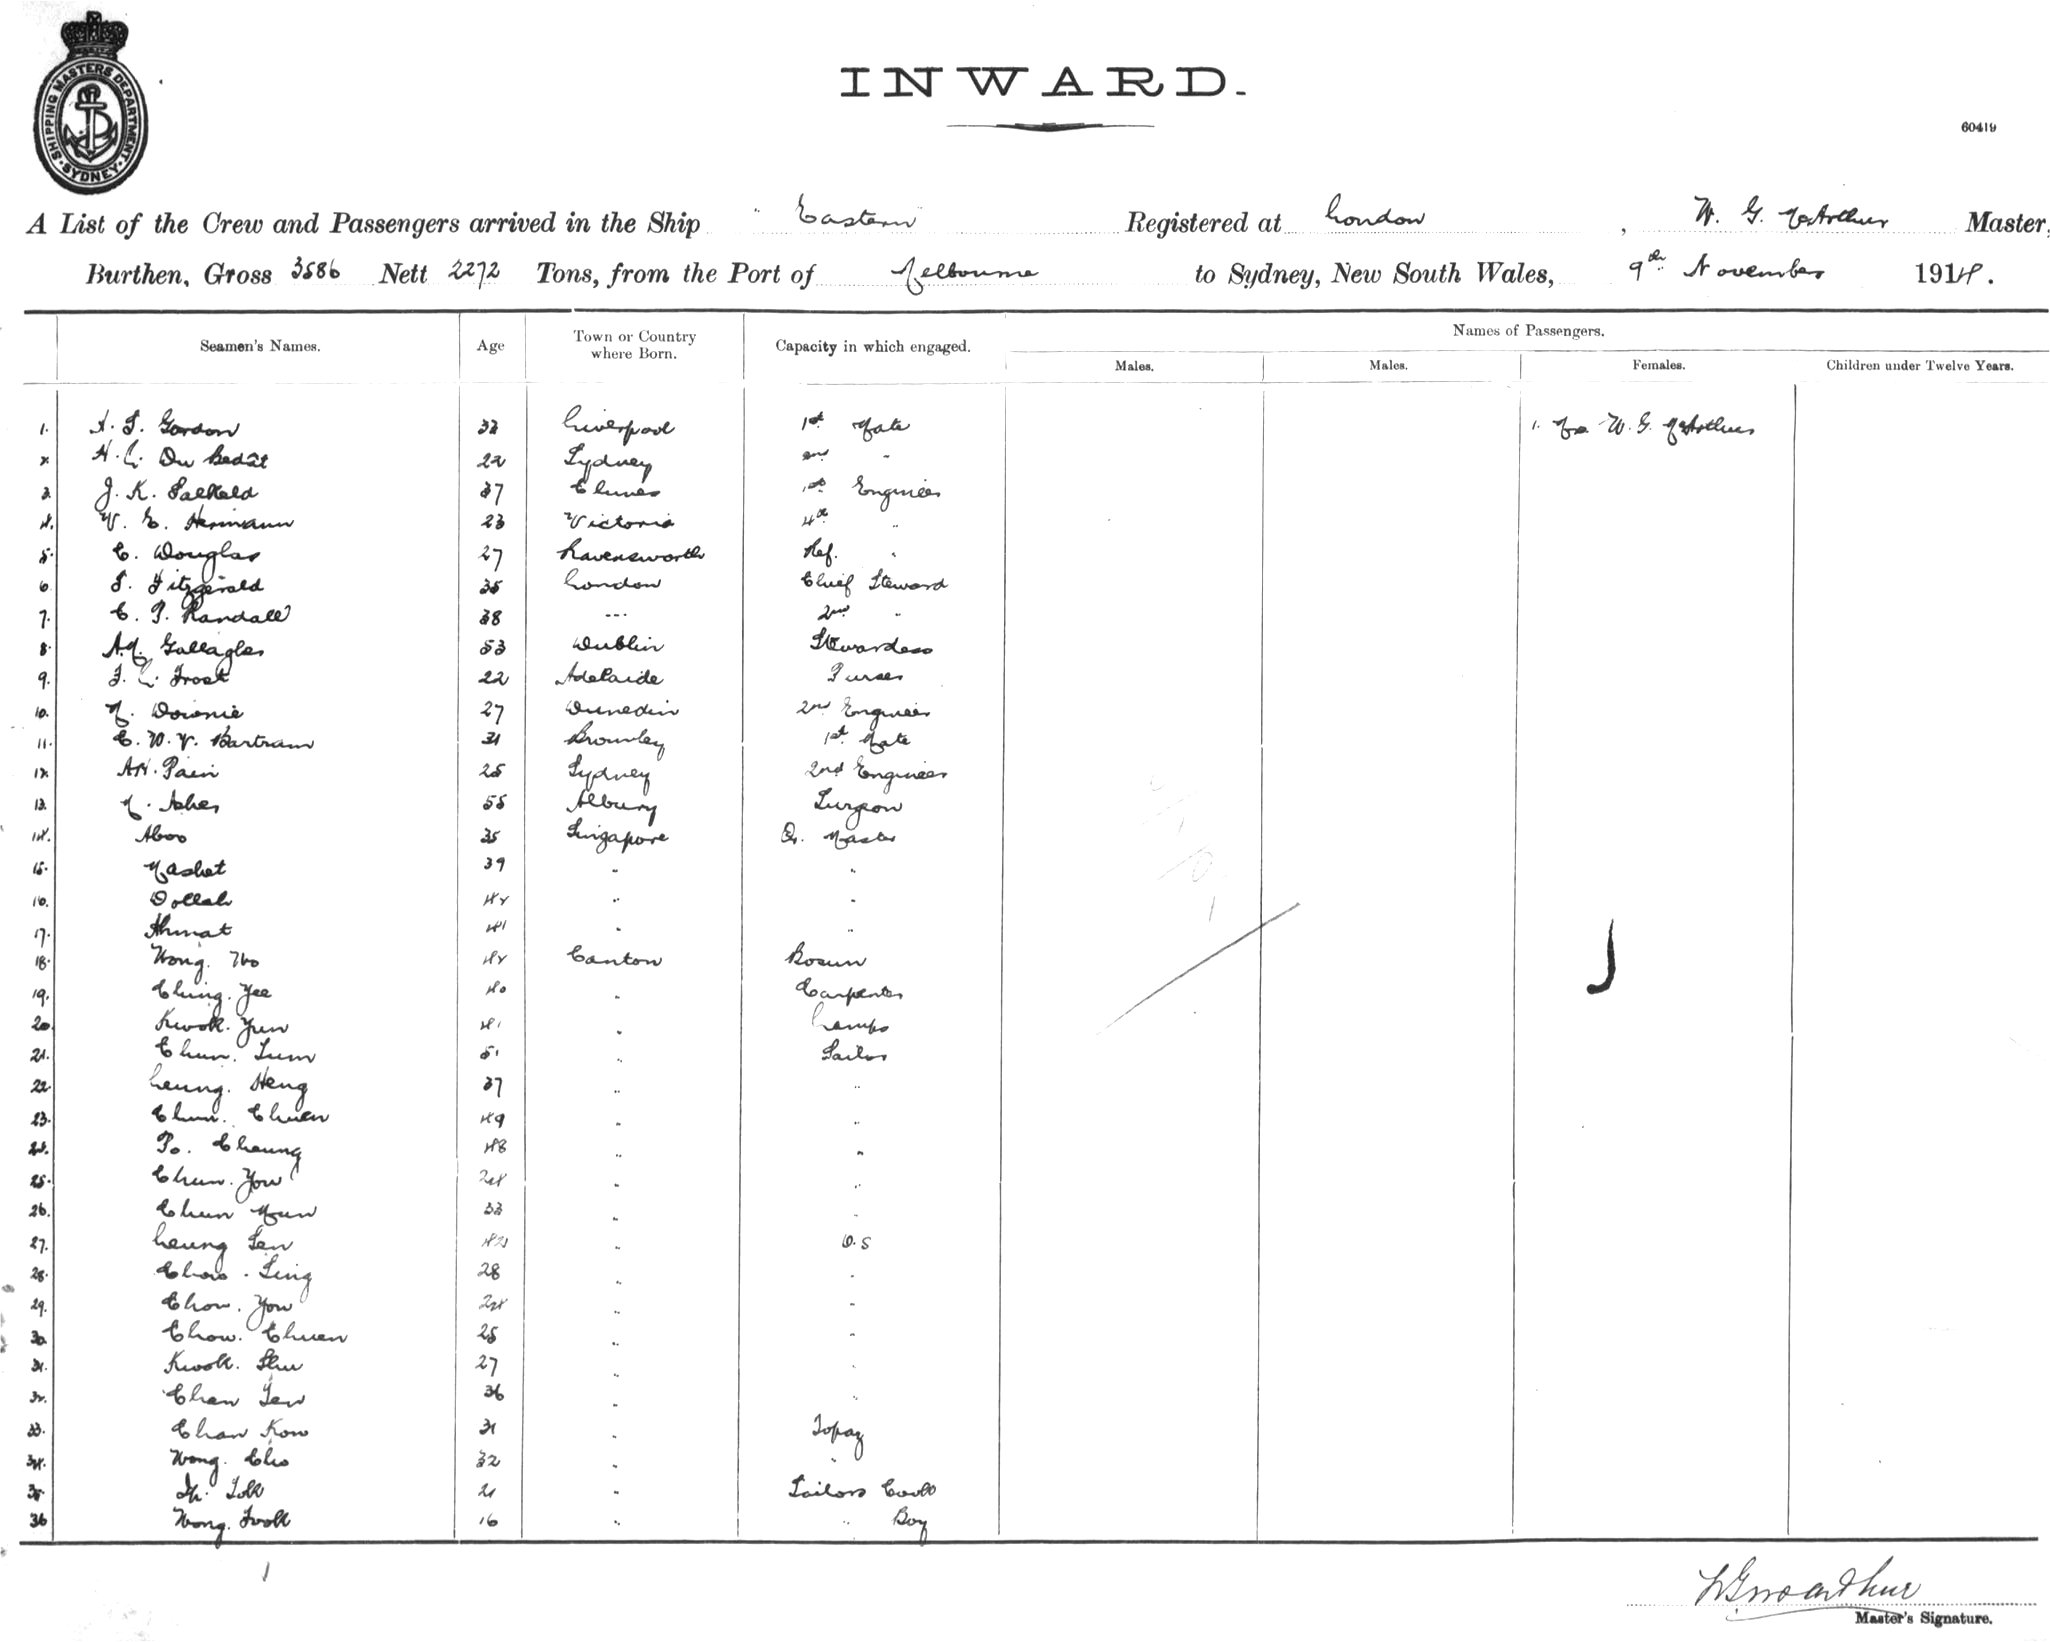 SHIPPING MASTERS DEPARTMENT · SYDNEY ·
INWARD.
60419
A List of the Crew and Passengers arrived in the Ship "Eastern Registered at London, W. G. McArthur Master,
Burthen, Gross 3586 Nett 2272 Tons, from the Port of Melbourne to Sydney, New South Wales, 9th November 1914.
Names of Passengers.
Seamen's Names. Age Town or Country where Born. Capacity in which engaged. Males. Males. Females. Children under Twelve Years.
1. A. S. Gordon 33 Liverpool 1st Mate 1. Mrs W. G. McArthur
2. H. L. Du Bedât 22 Sydney 2nd "
3. J. K. Salkeld 37 Clunes 1st Engineer
4. V. E. Hermann 23 Victoria 4th "
5. C. Douglas 27 Ravensworth Ref. "
6. S. Fitzgerald 35 London Chief Steward
7. C. P. Randall 38 --- 2nd "
8. A.M. Gallagher 53 Dublin Stewardess
9. F. L. Frost 22 Adelaide Purser
10. M. Downie 27 Dunedin 2nd Engineer
11. C. W. V. Bartram 31 Bromley 1st Mate
12. A.H. Pain 25 Sydney 2nd Engineer
13. M. Asher 55 Albury Surgeon
14. Aboo 35 Singapore Qr. Master
15. Mashet 39 " "
16. Dollah 42 " "
17. Ahmat 41 " "
18. Wong. Wo 42 Canton Bosun
19. Ching. Yee 40 " Carpenter
20. Kwok. Yun 41 " Lamps
21. Chun. Sum 51 " Sailor
22. Leung. Heng 37 " "
23. Chun. Chuen 49 " "
24. Po. Cheung 48 " "
25. Chun. You 24 " "
26. Chun Mun 33 " "
27. Leung Sen " O.S
28. Chow. Sing 28 " "
29. Chow. You 24 " "
30. Chow. Chuen 25 " "
31. Kwok. Shu 27 " "
32. Chan Sen 36 " "
33. Chan Kow 31 " Topaz
34. Wong. Cho 32 " "
35. 21 " Sailors Cook
36 Wong. Fook 16 " " Boy
W G McArthur
Master's Signature.